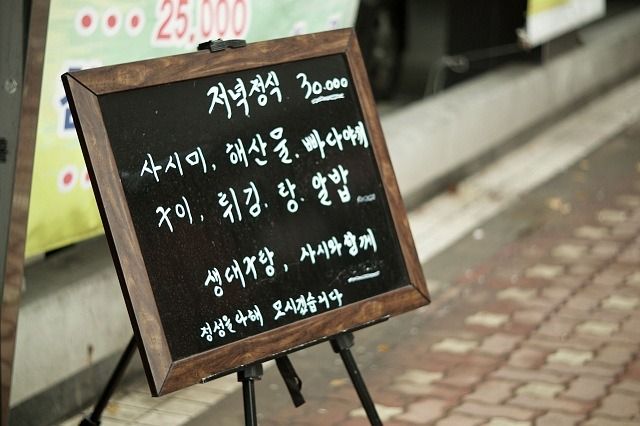 25,000
저녁정식 30.000
사시미, 해산물. 빠다야끼
구이, 튀김. 탕. 알밥
생대구탕, 사시와함께
정성을다해 모시겠습니다